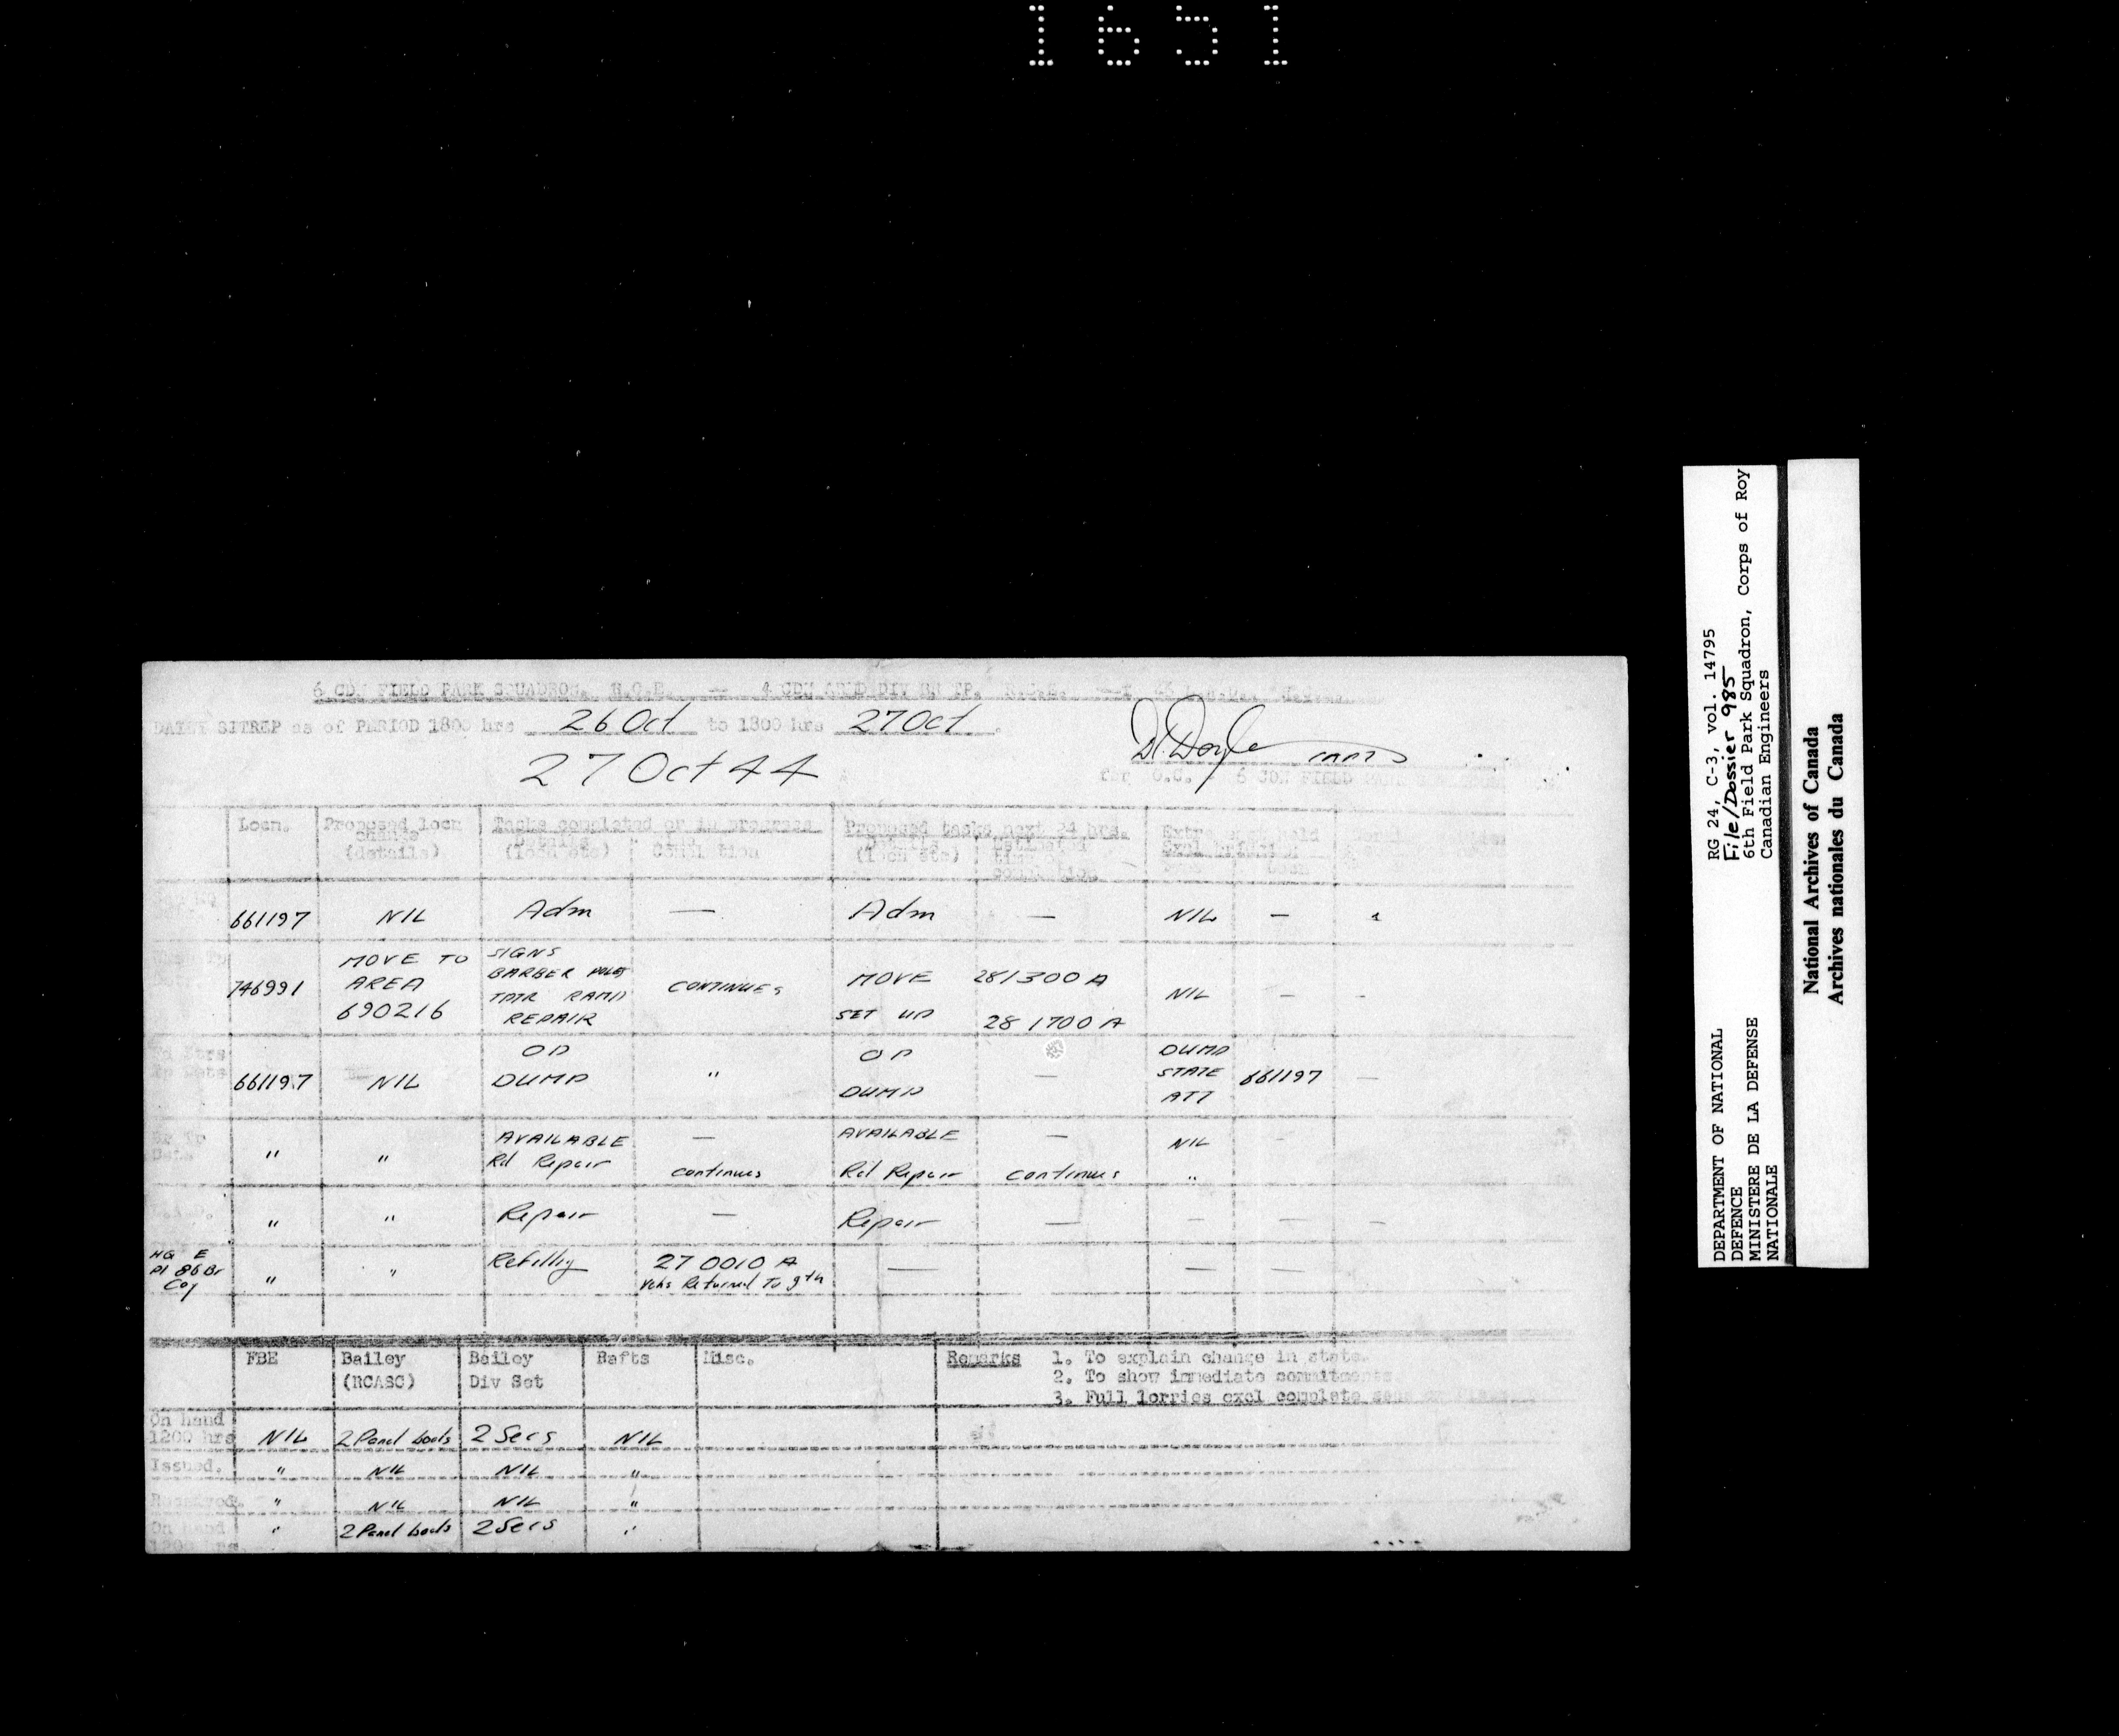 1651
6 CDN FIELD PARK SQUADRON, R.C.E. -- 4 CDN ARMD DIV EN TP. R.C.E.
DAILY SITREP as of PERIOD 1800 hrs 26 Oct to 1800 hrs 27 Oct.
27 Oct 44
for O.C. 6 CDN FIELD
Locn. Proposed locn Tasks completed or in progress Proposed tasks next 24 hrs.
change Details Details Estimated
(details) (locn etc) (locn etc) time
661197 NIL Adm — Adm — NIL —
746991 MOVE TO AREA 690216
SIGNS
BARBER POLES
RAMP
REPAIR
CONTINUES
MOVE 281300 A
SET UP 281700 A
NIL – –
661197 NIL OP DUMP " OP DUMP — DUMP STATE ATT 661197 —
Br Tp " " AVAILABLE — AVAILABLE — NIL
Rd Repair continues Rd Repair continues "
" " Repair — Repair — — — —
HQ E
Pl 86 Br
Coy
" " Refilling 27 0010 A — — —
Vehs Returned To 9th
FBE Bailey Bailey Rafts Misc. Remarks 1. To explain change in state.
(RCASC) Div Set 2. To show immediate commitments
3. Full lorries excl complete
On hand
1200 hrs NIL 2 Panel loads 2 Secs NIL
Issued. " NIL NIL "
Received. " NIL NIL "
On hand " 2 Panel loads 2 Secs "
1800 hrs.
RG 24, C-3, vol. 14795
File/Dossier 985
6th Field Park Squadron, Corps of Roy
Canadian Engineers
DEPARTMENT OF NATIONAL
DEFENCE
MINISTERE DE LA DEFENSE
NATIONALE
National Archives of Canada
Archives nationales du Canada